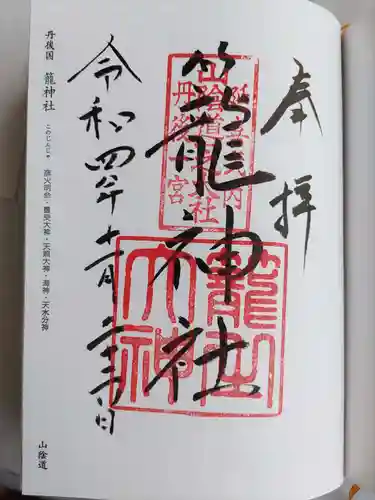 奉拝
籠神社
令和四年十一月二十六日
山陰道
丹後一宮
籠
大神
丹後国 籠神社 このじんじゃ 彦火明命・豊受大神・天照大神・海神・天水分神
山陰道